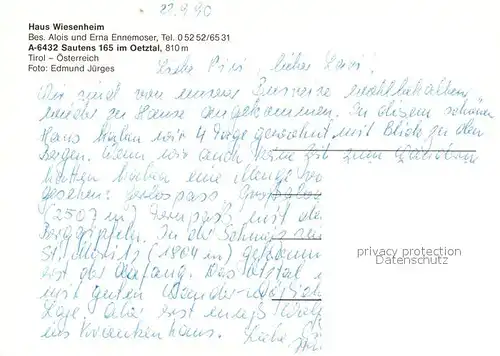 22.9.90
Haus Wiesenheim
Bes. Alois und Erna Ennemoser, Tel. 0 52 52/65 31
A-6432 Sautens 165 im Oetztal, 810 m
Tirol – Österreich
Foto: Edmund Jürges
Liebe lieber
Wir sind von unserer Busreise wohlbehalten
wieder zu Hause angekommen. In diesem schönen
Haus haben wir 4 Tage gewohnt mit Blick zu den
Bergen. Wenn wir auch keine Zeit zum Wandern
hatten haben eine Menge
gesehen:
(2507 m) Fernpass mit
Berggipfeln. In der Schweiz
St. Moritz (1804 m)
erst der Anfang. Das Ötztal
mit guten Wander
Lage. Aber erst muß
ins Krankenhaus. Liebe
privacy protection
Datenschutz